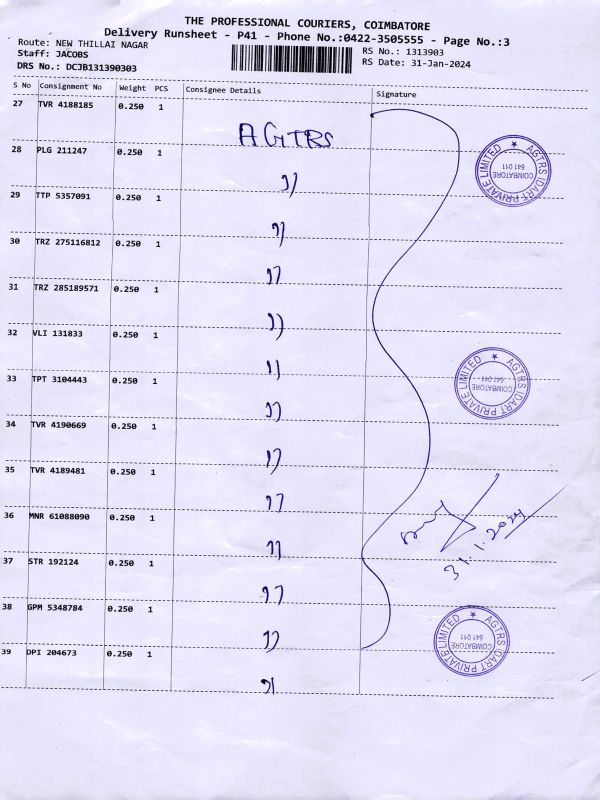 THE PROFESSIONAL COURIERS, COIMBATORE
Delivery Runsheet - P41 - Phone No.:0422-3505555 - Page No.:3
Route: NEW THILLAI NAGAR
Staff: JACOBS
DRS No.: DCJB131390303
RS No.: 1313903
RS Date: 31-Jan-2024
S No Consignment No Weight PCS Consignee Details Signature
27 TVR 4188185 0.250 1
AGTRS
28 PLG 211247 0.250 1
"
29 TTP 5357091 0.250 1
"
30 TRZ 275116812 0.250 1
"
31 TRZ 285189571 0.250 1
"
32 VLI 131833 0.250 1
"
33 TPT 3104443 0.250 1
"
34 TVR 4190669 0.250 1
"
35 TVR 4189481 0.250 1
"
36 MNR 61088090 0.250 1
"
37 STR 192124 0.250 1
"
38 GPM 5348784 0.250 1
"
39 DPI 204673 0.250 1
"
AGTRS IDART PRIVATE LIMITED
COIMBATORE
641 011
AGTRS IDART PRIVATE LIMITED
COIMBATORE
641 011
31.1.2024
AGTRS IDART PRIVATE LIMITED
COIMBATORE
641 011